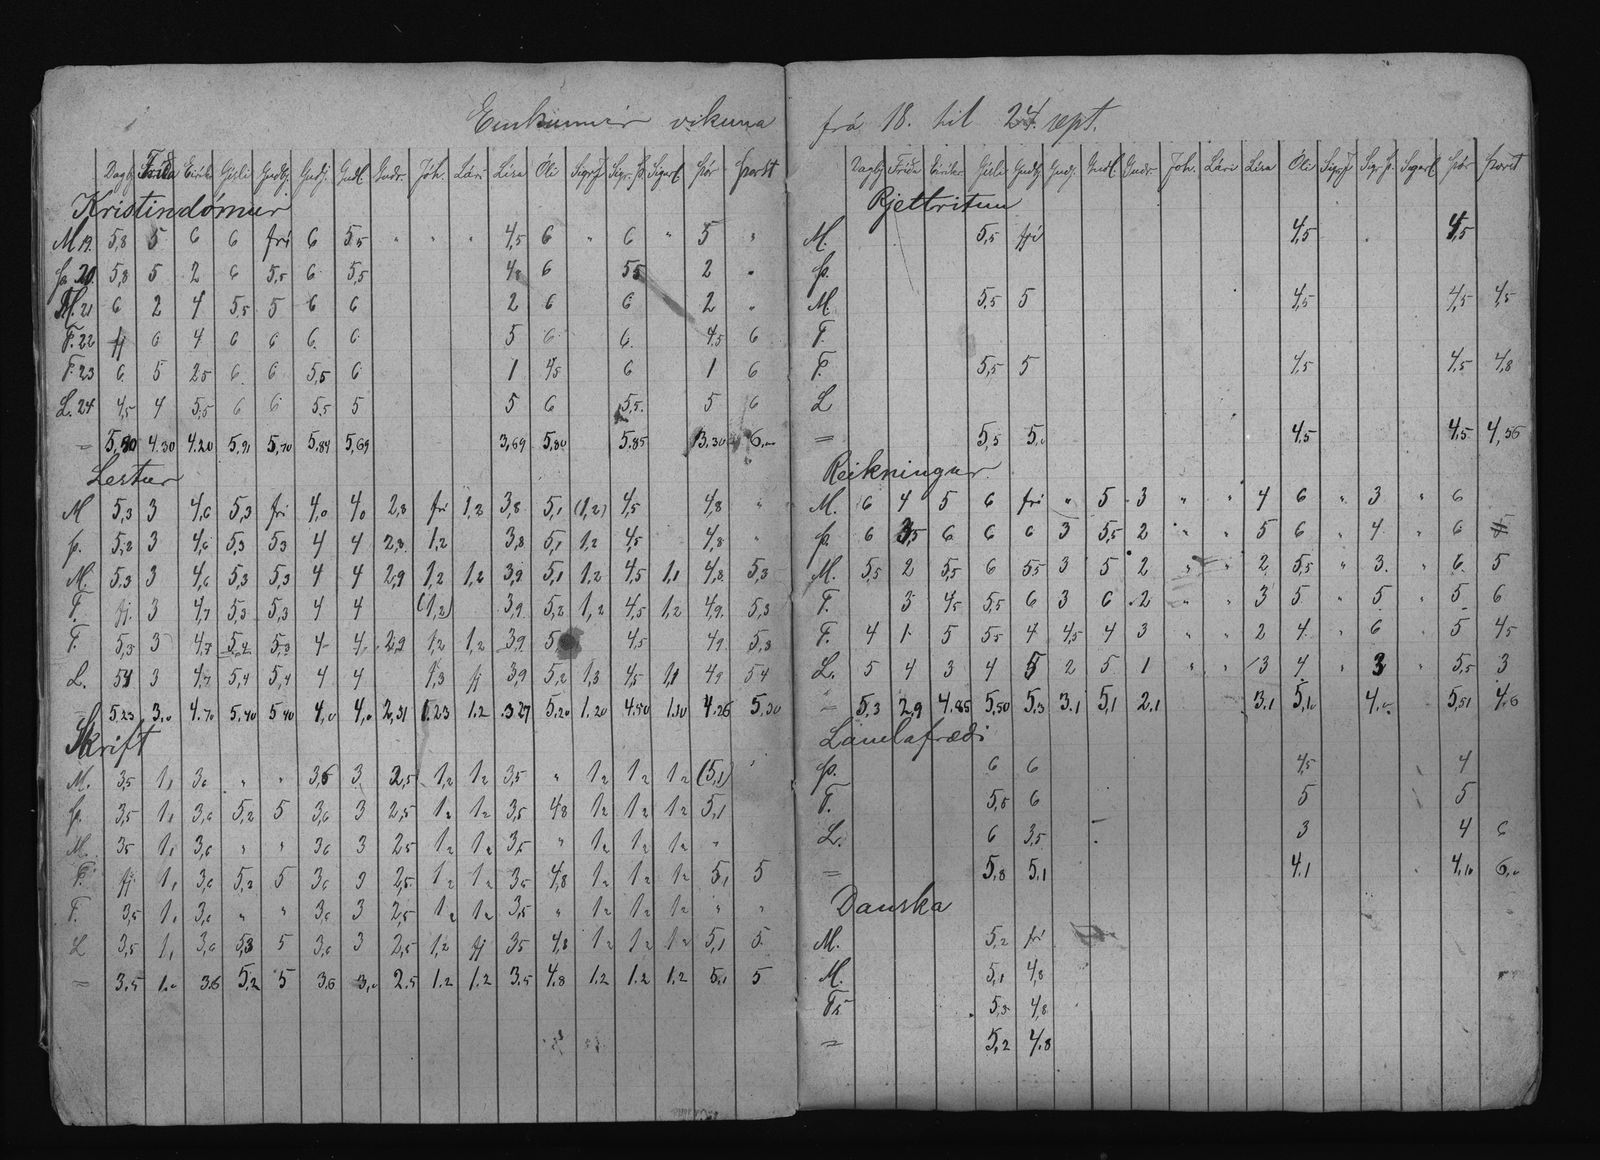 Einkunnir vikuna
Dagbj Fríða Eirík Gísli Guðbj Guðj. Guðl Guðr. Jóh. Lári Lísa Óli Sigr J Sigr. Þ. Sigurl Þór Þorst
Kristindómur
M. 19. 5,8 5 6 6 frí 6 5,5 " " " 4,5 6 " 6 " 5 "
Þ. 20. 5,8 5 2 6 5,5 6 5,5 6 55 2 "
M. 21 6 2 4 5,5 5 6 6 2 6 6 2 "
F. 22 fj 6 4 6 6 6. 6 5 6 6. 4,5 6
F. 23 6 5 25 6 6 5,5 6 1 4,5 6 1 6
L. 24 4,5 4 5,5 6 6 5,5 5 5 6 5,5. 5 6
= 4.30 4.20 5,91 5,70 5,84 5,69 3,69 5,80 5.85 3.30 6,00
Lestur
M 5,3 3 4,6 5,3 frí 4,0 4,0 2,8 frí 1,2 3,8 5,1 (1,2) 4,5 4,8 "
Þ. 5,2 3 4,6 5,3 53 4 4 2,8 1,2 3,8 5,1 1,2 4,5 4,8 "
M. 5,3 3 4,6 5,3 5,3 4 4 2,9 1,2 1,2 3,9 5,1 1,2 4,5 1,1 4,8 5,3
F. fj. 3 4,7 5,3 5,3 4 4 (1,2) 3,9 5,2 1,2 4,5 1,2 4,9. 5,3
F. 5,3 3 4,7 5,4 5,3 4 4 2,9 1,2 1,2 3,9 5 4,5 49. 5,3
L. 54 3 4,7 5,4 5,4 4 4 1,3 fj 3,9 5,2 1,3 4,5 1,1 4,9 54
= 5,23 3,0 4.70 5,40 540 4,0 4,0 2,31 1.23 1.2 3.27 5.20 1.20 4.50 1.10 4.26 5,30
Skrift
M. 3,5 1,1 3,6 " " 3,6 3 2,5 1,2 1,2 3,5 " 1,2 1,2 1,2 (5,1) "
Þ. 3,5 1,1 3,6 5,2 5 3,6 3 2,5 1,2 1,2 3,5 48 1,2 1,2 1,2 5,1
M. 35 1,1 3,6 " " 36 3 25 1,2 1,2 3,5 " 1,2 1,2 1,2 "
F. fj 1,1 3,6 5,2 5 36 3 2,5 1,2 1,2 35 4,8 1,2 1,2 1,2 5,1 5
F. 3,5 1,1 3,6 " " 36 3 2,5 1,2 1,2 3,5 " 1,2 1,2 1,2 " "
L 3,5 1,1 3,6 5,3 5 3,6 3 2,5 1,2 fj 35 4,8 1,2 1,2 1,2 5,1 5.
= 3,5 1.0 3.6 5,2 5 3.6 3,0 2.5 1.2 1.2 3.5 4.8 1.2 1.2 1.2 5.1 5
frá 18. til 24. sept.
Dagbj Fríða Eirík Gísli Guðbj Guðj. Guðl. Guðr Jóh. Lári Lísa Óli Sigr J Sigr Þ. Sigurl Þór Þorst
Rjettritun
M. 5,5 frí 4,5 4,5
Þ.
M. 5,5 5 4,5 4,5 4,5
F.
F. 5,5 5 4,5 4,5 4,8
L
= 5,5 5,0 4.5 4.5 4,56
Reikningur
M. 6 4 5 6 frí " 5 3 " " 4 6 " 3 " 6
Þ. 6 3,5 6 6 6 3 5,5 2 " " 5 6 " 4 " 6
M. 5,5 2 5,5 6 5,5 3 5 2 " " 2 5,5 " 3. " 6. 5
F. 3 4,5 5,5 6 3 6 2 " " 3 5 " 5 " 5 6
F. 4 1 5 5,5 4 4,5 4 3 " " 2 4 " 6 " 5 4,5
L. 5 4 3 4 5 2 5 1 " " 3 4 " 3 " 5,5 3
= 5,3 2,9 4.85 5,50 5,3 3.1 5,1 2.1 3.1 5,10 4.0 5,51 4.6
Landafræði
Þ. 6 6 4,5 4
F. 5,5 6 5 5
L. 6 3,5 3 4 6
= 5,8 5,1 4.1 4,10 6,0
Danska
M. 5,2 frí
M. 5,1 4,8
Fö 5,3 4,8
= 5,2 4.8